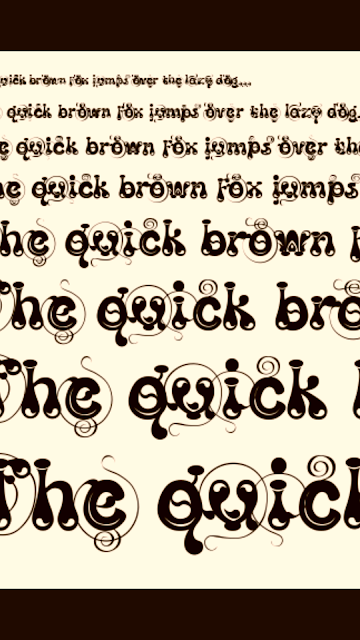 quick brown fox jumps over the lazy dog...
quick brown fox jumps over the lazy dog.
e quick brown fox jumps over the
he quick brown fox jumps
he quick brown f
The quick bro
The quick
The quick